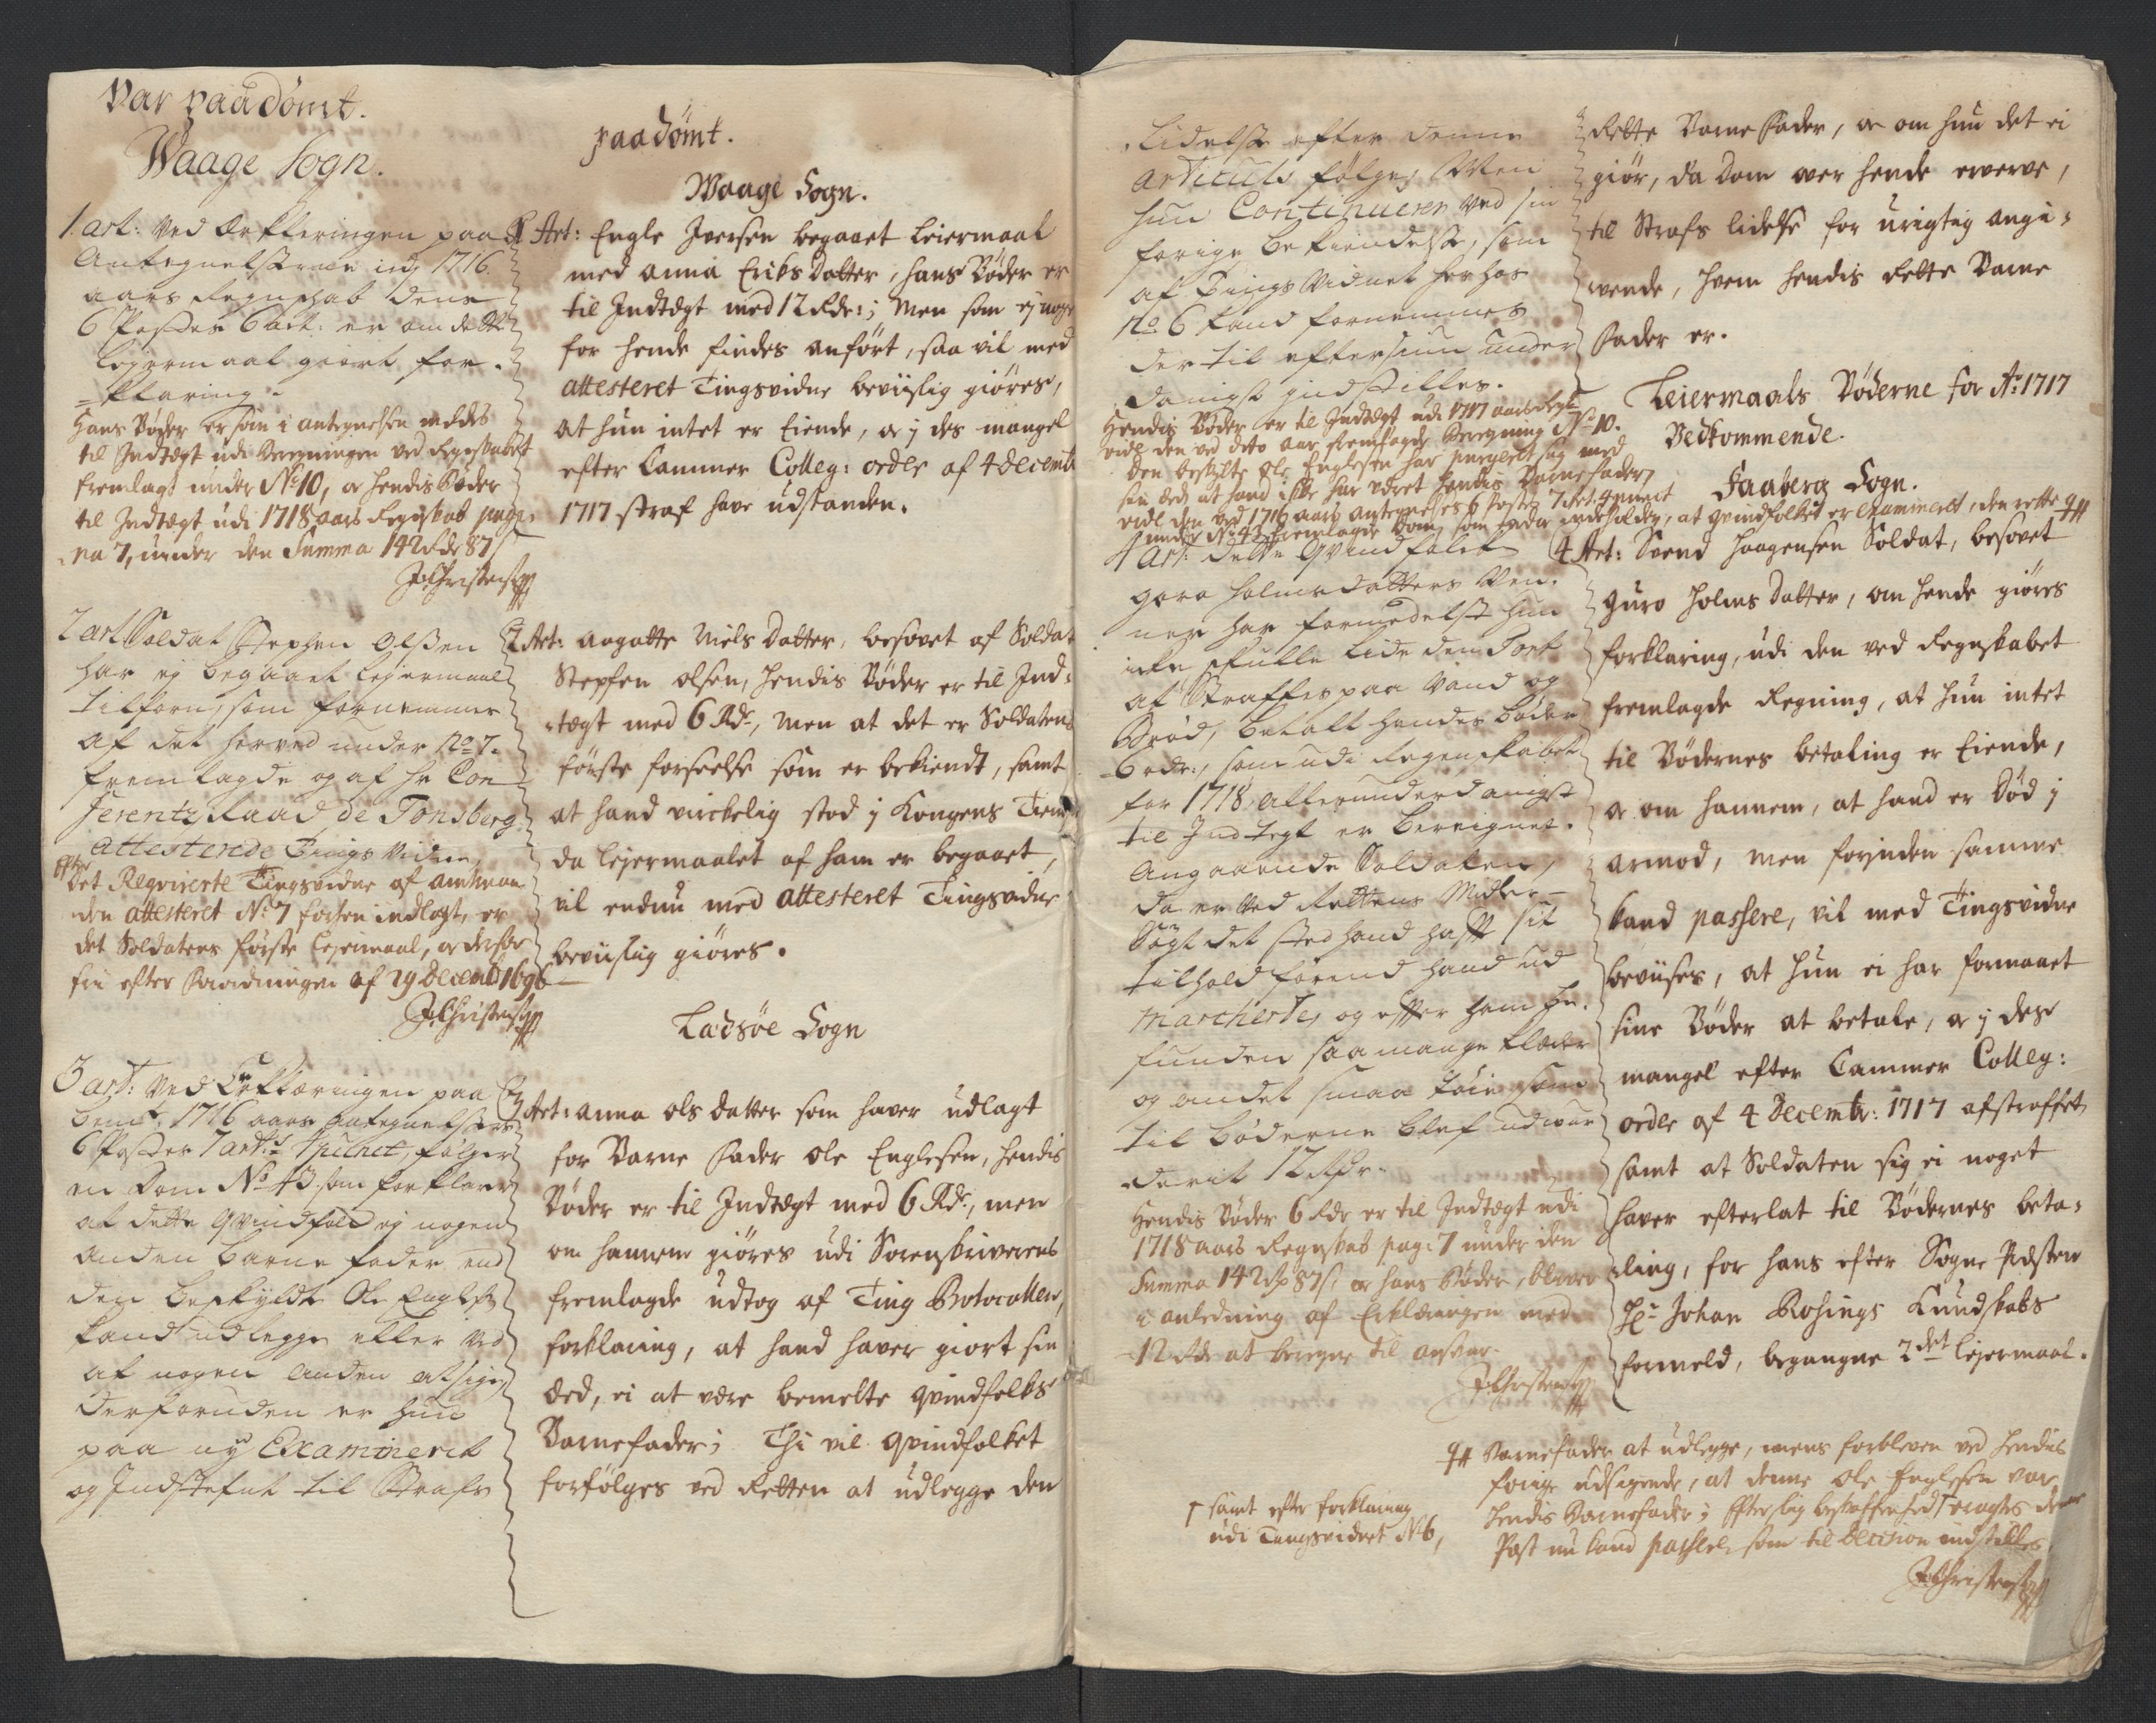 Var paadømt.
Waage Sogn.
1. art: Ved Erkleringen paa
Antegnelserne udj 1716
aars Regnskab dene
6 Poster 6 art: er om dette
Lejermaal giort for-
=klaring.
Hans Bøder er som i antegnelsen meldes
til Indtægt udi Beregningen ved Regnskabet
fremlagt under No 10, og hendis Bøder
til Indtægt udi 1718 aars Regnskab pagi-
na 7, under den Summa 142 Rdr 87 s
JChristens
2 art Soldat Stephen Olssen
har ej begaaet Lejermaal
tilforn, som fornemmes
af det herved under No 7.
fremlagde og af Hr Con
ferentz Raad de Tonsberg
attesterede Tings Vidne,
Efter
det Reqvirerte Tingsvidne af amtman-
den attesteret No 7 hosten indlagt, er
det Soldatens første Lejermaal, og derfor
fri efter Forordningen af 29 Decemb 1696
JChristens
3 art: Ved Erklæringen paa
bemt 1716 aars Antegnelser
6 Poster 7 art: 4 punct, følger
en Dom No 43 som forklarer
at dette Qvindfolk ej nogen
anden Barne fader end
den beskyldte Ole Englesen
kand udlegge eller ved
af nogen anden at sige,
Derforuden er hun
paa ny Examineret
og Indstefnt til Strafs
paadømt.
Waage Sogn.
1 Art: Engle Iversen begaaet Leiermaal
med Anna Eriks Datter, hans Bøder er
til Indtægt med 12 Rdr:; Men som ej noget
for hende findes anført, saa vil med
attesteret Tingsvidne beviislig giøres,
at hun intet er Eiende, og j des mangel
efter Cammer Colleg: ordre af 4 Decembr
1717 straf have udstanden.
2 Art: Aagatte Niels Datter, besovet af Soldat
Stepfen Olsen, hendis Bøder er til Ind-
tægt med 6 Rdr, Men at det er Soldatens
første forseelse som er bekiendt, samt
at hand virckelig stod j Kongens Tien
da Lejermaalet af ham er begaaet,
vil endnu med attesteret Tingsvidne
beviislig giøres.
Ladsøe Sogn
3 Art: Anna Ols Datter som haver udlagt
for Barne Fader Ole Englesen, hendis
Bøder er til Indtægt med 6 Rdr, men
om hannem giøres udi Sorenskriverens
fremlagde udtog af Ting Protocollen,
forklaring, at hand haver giort sin
Æed, ei at være bemelte qvindfolks
Barnefader; Thi vil qvindfolket
forfølges ved Retten at udlegge den
Lidelse efter denne
Articuls følge, Men
hun Continuerer ved sin
forige bekiendelse, som
af Tings Vidnet herhos
No 6 kand fornemmes
der til eftersiun under-
danigst indstilles.
Hendis Bøder er til Indtægt udi 1717 aars Regnsk
vidl den ved dito aar fremlagde Beregning No 10.
den beskylte Ole Englesen har purgeret sig med
sin Æd, at hand ikke har været hendis Barnefader,
vidl den ved 1716 aars antegnelses 6 Poster 7 Art. 4 punct
under No 43 fremlagde Dom, som paa der indeholder, at qvindfolket er Examineret, den rette #
4 Art: dette Qvindfolck
Goro Holmsdatters Ven-
ner har formedelst hun
icke skulle lide den Tort
at Straffes paa Vand og
Brød, betalt hendes Bøder
6 rdr:, som udi Regenskabet
for 1718 allerunderdanigst
til Indtegt er beregnet.
Angaaende Soldaten,
da er ved Rettens Midler
Søgt det sted hand hafft sit
tilhold førend hand ud
marcherte, og effter ham be-
funden saa mange klæder
og andet smaa tøii, som
til bøderne blef udvur-
deerit 12 Rdr.
Hendis Bøder 6 Rdr er til Indtægt udi
1718 aars Regnskab pag: 7 under den
Summa 142 Rdr 87 s; og hans Bøder, bliver
i anledning af Erklæringen med
12 Rdr at beregne til ansvar.
JChristens
† samt efter forklaring
udi Tingsvidnet No 6,
Rette Barne Fader, og om hun det ei
giør, da Dom over hende erverve,
til Strafs lidelse for urigtig angi-
vende, hvem hendis Rette Barne
Fader er.
Leiermaals Bøderne for Ao: 1717
Vedkommende.
Faaberg Sogn.
4 Art: Svend Haagensen Soldat, besovet
Guro Holms Datter, om hende giøres
forklaring, udi den ved Regnskabet
fremlagde Regning, at hun intet
til Bødernes betaling er Eiende,
og om hannem, at hand er død j
armod, men forjnden samme
kand passere, vil med Tingsvidne
beviises, at hun ei har formaaet
sine Bøder at betale, og j des
mangel efter Cammer Colleg:
ordre af 4 Decembr: 1717 afstraffet
samt at Soldaten sig ei noget
haver efterlat til Bødernes beta-
ling, for hans efter Sogne Præsten
Hr Johan Rosings Kundskabs
formeld, begangne 2det Lejermaal.
# Barnefader at udlegge, mens forbleven ved hendis
forige udsigende, at denne Ole Englesen var
hendis Barnefader; Efter slig beskaffenhed † eragtes denne
Post nu kand passere, som til Decision indstilles
JChristens